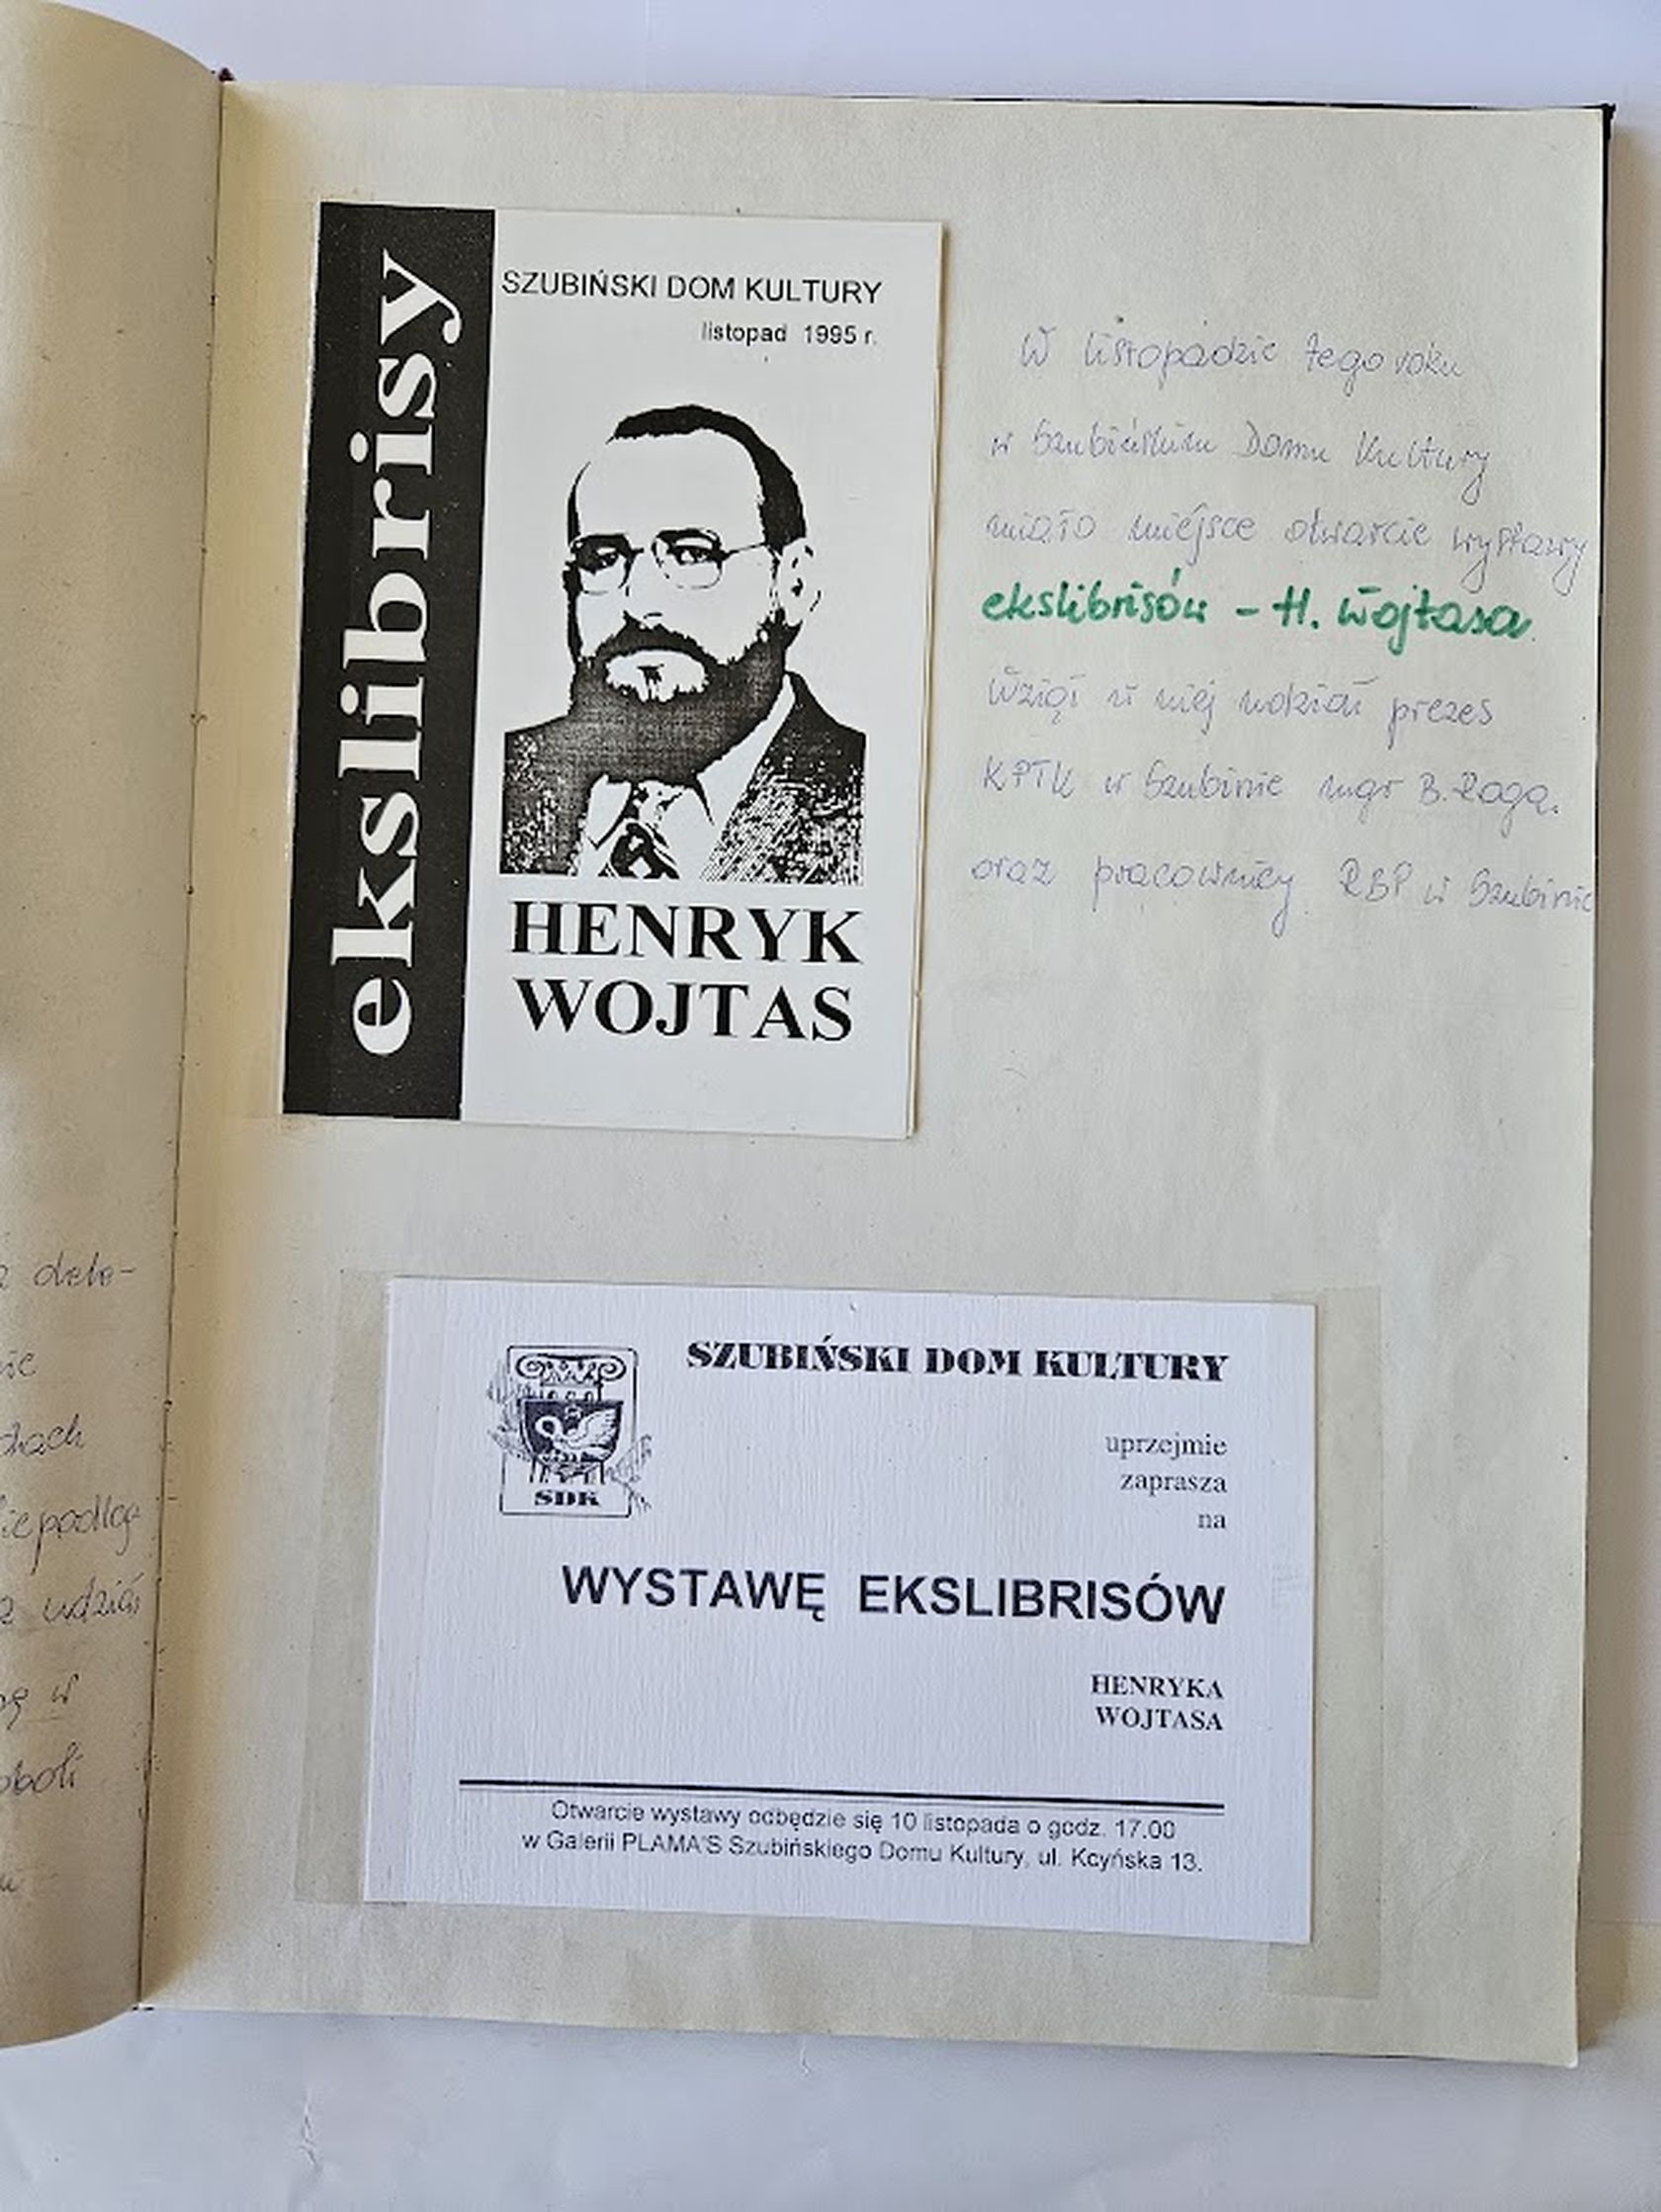 ekslibrisy
SZUBIŃSKI DOM KULTURY
listopad 1995 r.
HENRYK
WOJTAS
W listopadzie tego roku
w Szubińskim Domu Kultury
miało miejsce otwarcie wystawy
ekslibrisów - H. Wojtasa.
Wziął w niej udział prezes
KPTK w Szubinie mgr B. Roga.
oraz pracownicy RBP w Szubinie
SDK
SZUBIŃSKI DOM KULTURY
uprzejmie
zaprasza
na
WYSTAWĘ EKSLIBRISÓW
HENRYKA
WOJTASA
Otwarcie wystawy odbędzie się 10 listopada o godz. 17.00
w Galerii PLAMA'S Szubińskiego Domu Kultury, ul. Kcyńska 13.